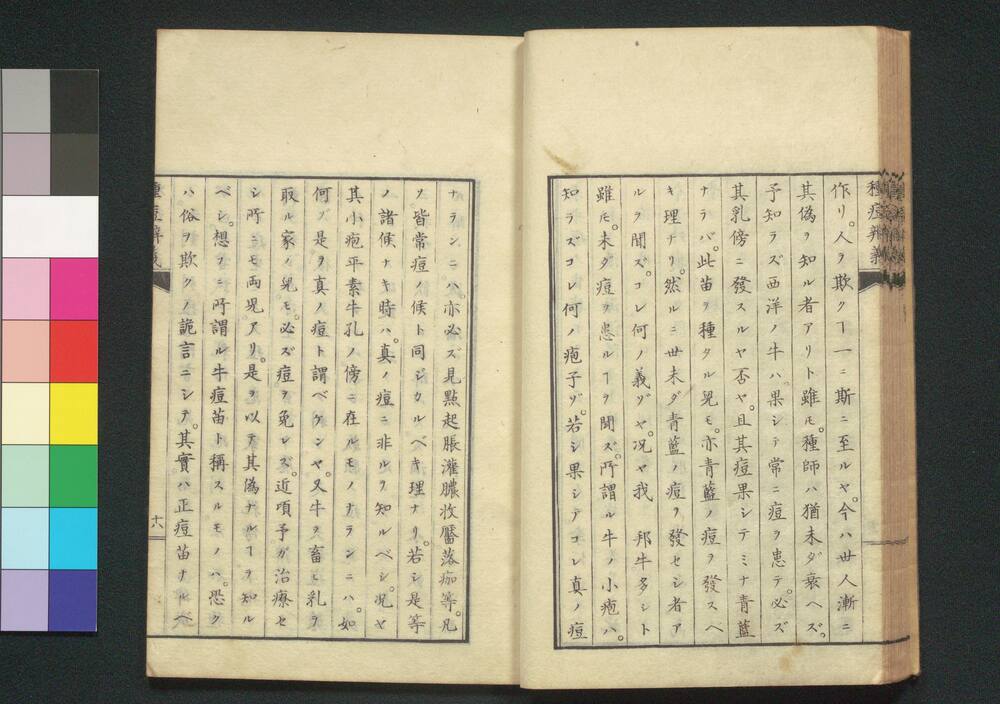 種痘辨義
作リ。人ヲ欺クヿ一ニ斯ニ至ルヤ。今ハ世人漸ニ
其偽ヲ知ル者アリト雖𪜈。種師ハ猶未ダ衰ヘズ。
予知ラズ西洋ノ牛ハ。果シテ常ニ痘ヲ患テ。必ズ
其乳傍ニ發スルヤ否ヤ。且其痘果シテミナ青藍
ナラバ。此苗ヲ種タル兒モ。亦青藍ノ痘ヲ發スヘ
キ理ナリ。然ルニ世未ダ青藍ノ痘ヲ發セシ者ア
ルヲ聞ズ。コレ何ノ義ゾヤ。况ヤ我 邦牛多シト
雖𪜈。未ダ痘ヲ患ルヿヲ聞ズ。所謂ル牛ノ小疱ハ。
知ラズコレ何ノ疱子ゾ。若シ果シテコレ真ノ痘
ナランニハ。亦必ズ見點起脹灌膿收靨落痂等。凡
ソ皆常痘ノ候ト同ジカルベキ理ナリ。若シ是等
ノ諸候ナキ時ハ。真ノ痘ニ非ルヲ知ルベシ。况ヤ
其小疱平素牛乳ノ傍ニ在ルモノナランニハ。如
何ゾ是ヲ真ノ痘ト謂ベケンヤ。又牛ヲ畜ヒ乳ヲ
取ル家ノ兒モ。必ズ痘ヲ免レズ。近項予ガ治療セ
シ所ニモ両兒アリ。是ヲ以テ其偽ナルヿヲ知ル
ベシ。想フニ所謂ル牛痘苗ト稱スルモノハ。恐ク
ハ俗ヲ欺クノ詭言ニシテ。其實ハ正痘苗ナルベ
種痘辨義
十八